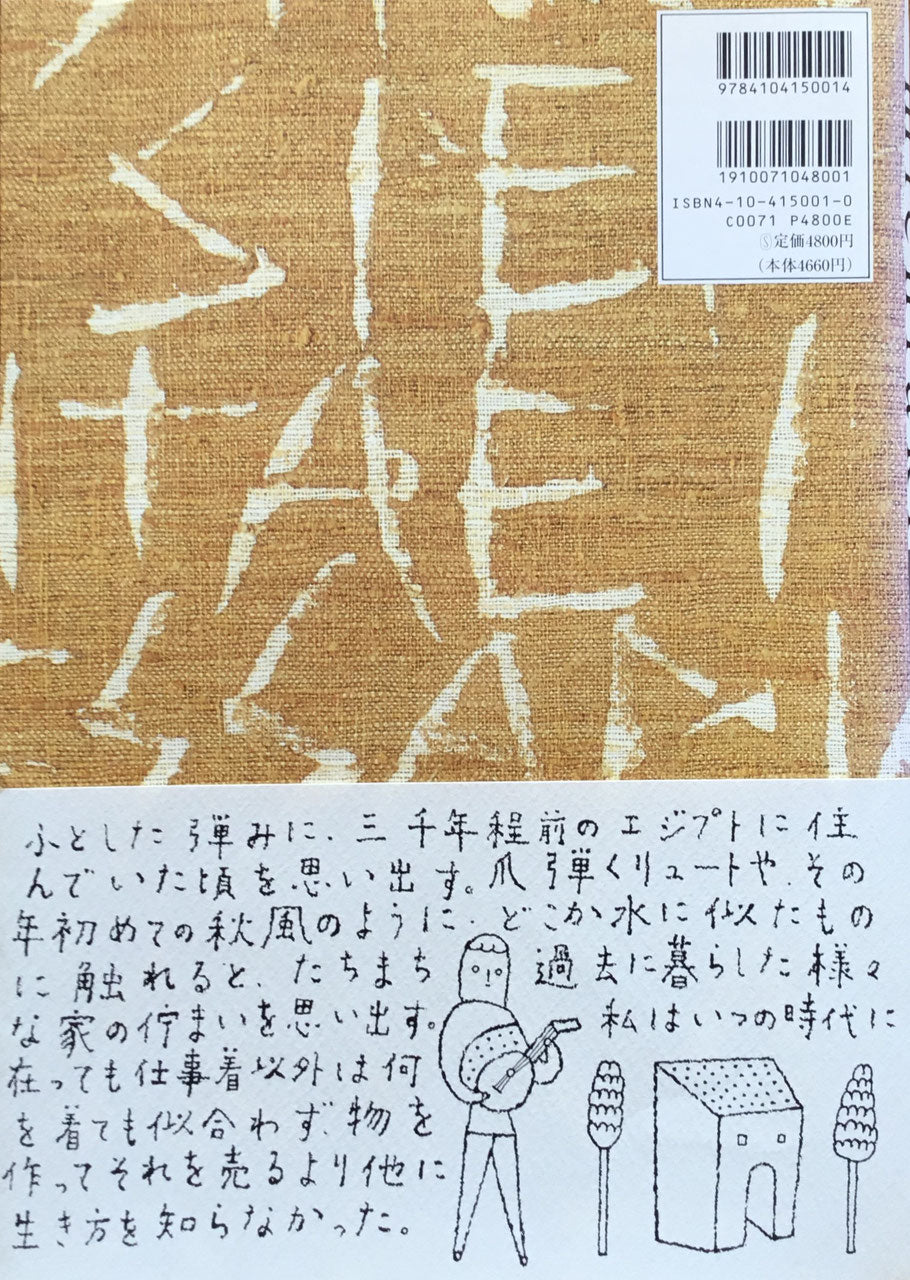 9784104150014
1910071048001
ISBN4-10-415001-0
C0071 P4800E
Ⓢ定価4800円
(本体4660円)
SIE
TAE
ふとした弾みに、三千年程前のエジプトに住
んでいた頃を思い出す。爪弾くリュートや、その
年初めての秋風のように、どこか水に似たもの
に触れると、たちまち過去に暮らした様々
な家の佇まいを思い出す。私はいつの時代に
在っても仕事着以外は何
を着ても似合わず、物を
作ってそれを売るより他に
生き方を知らなかった。